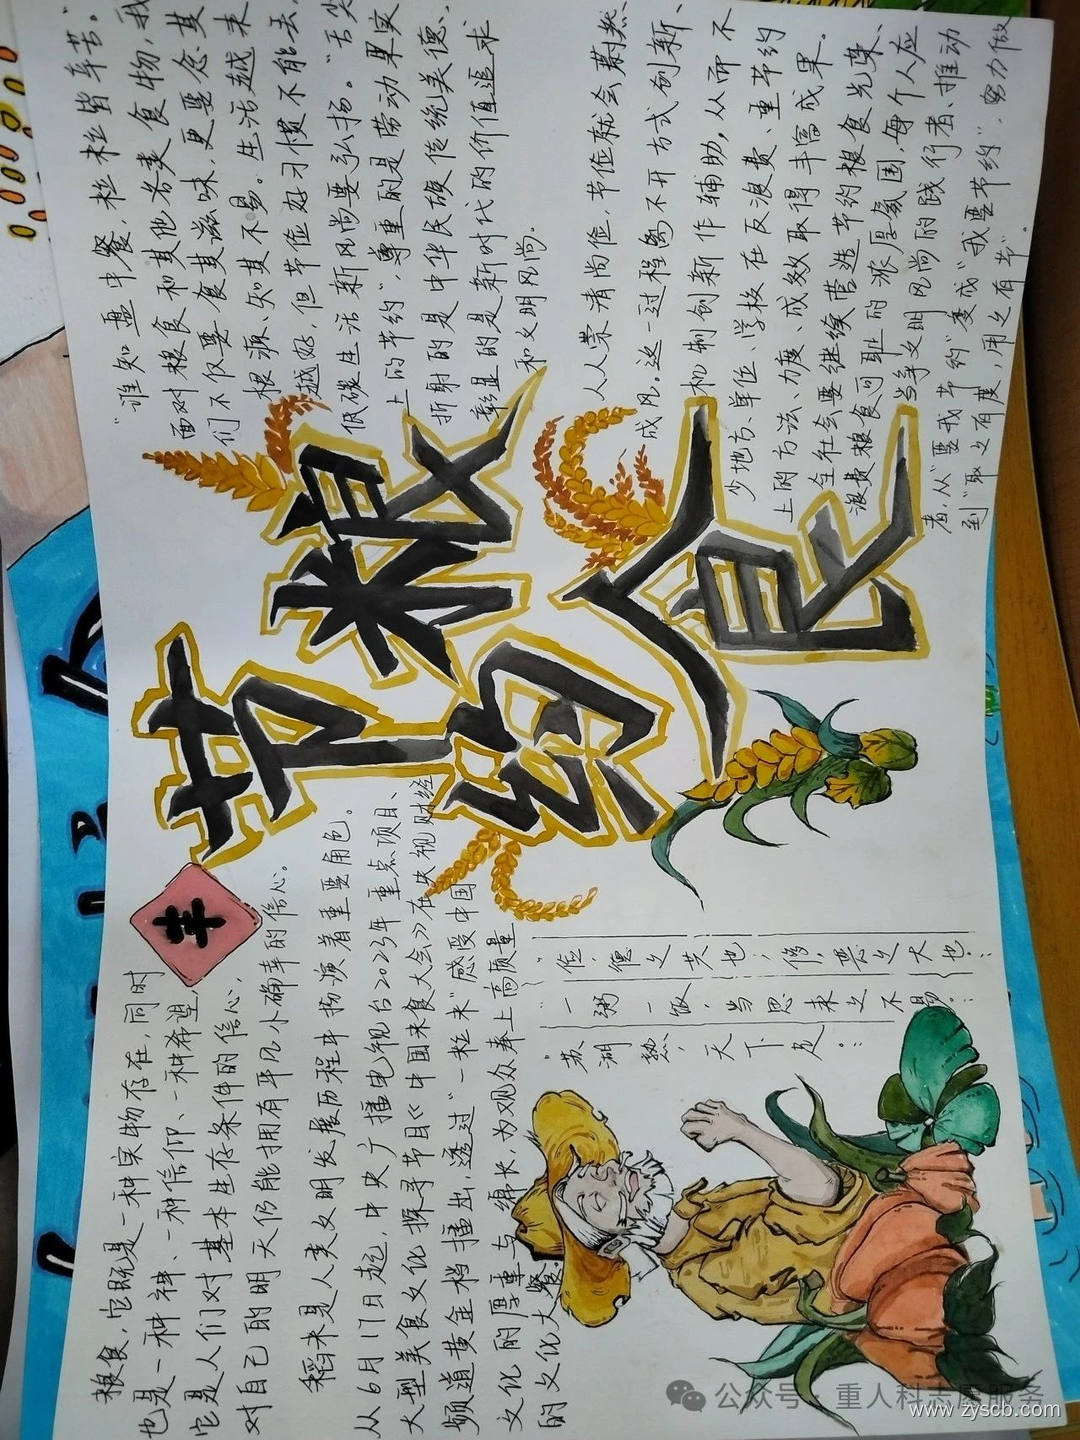 粮食,它既是一种实物存在,同时
也是一种精神、一种信仰、一种希望,
它是人们对基本生存条件的信心,
对自己的明天仍能拥有平凡小确幸的信心。
稻米是人类文明发展历程中扮演着重要角色。
从6月17日起,中央广播电视台2023年重点项目、
大型美食文化探寻节目《中国米食大会》在央视财经
频道黄金档播出,透过“一粒米”感受中国
文化的厚重与绵长,为观众奉上高质量
的文化大餐。
丰
节约
粮食
“谁知盘中餐,粒粒皆辛苦。”
面对粮食和其他各类食物,我
们不仅要食其滋味,更要念其
根源、知其不易。生活越来
越好,但节俭好习惯不能丢,
低碳生活新风尚要弘扬。“舌尖
上的节约”,尊重的是劳动果实
折射的是中华民族传统美德,
彰显的是新时代的价值追求
和文明风尚.
“俭,德之共也;侈,恶之大也.”
“一粥一饭,当思来之不易.”
“苏湖熟,天下足.”
人人崇清尚俭,节俭就会蔚然
成风,这一过程离不开方式创新、
机制创新作辅助,从而不
少地方、单位、学校在反浪费、重节约
上的方法、力度、成效取得丰富成果。
全社会要继续营造节约粮食光荣、
浪费粮食可耻的浓厚氛围,每个人应
当争文明风尚的践行者、推动
者,从“要我节约”变成“我要节约”,努力做
到“取之有度,用之有节”。
公众号·重人科志愿服务
www.zyscb.com